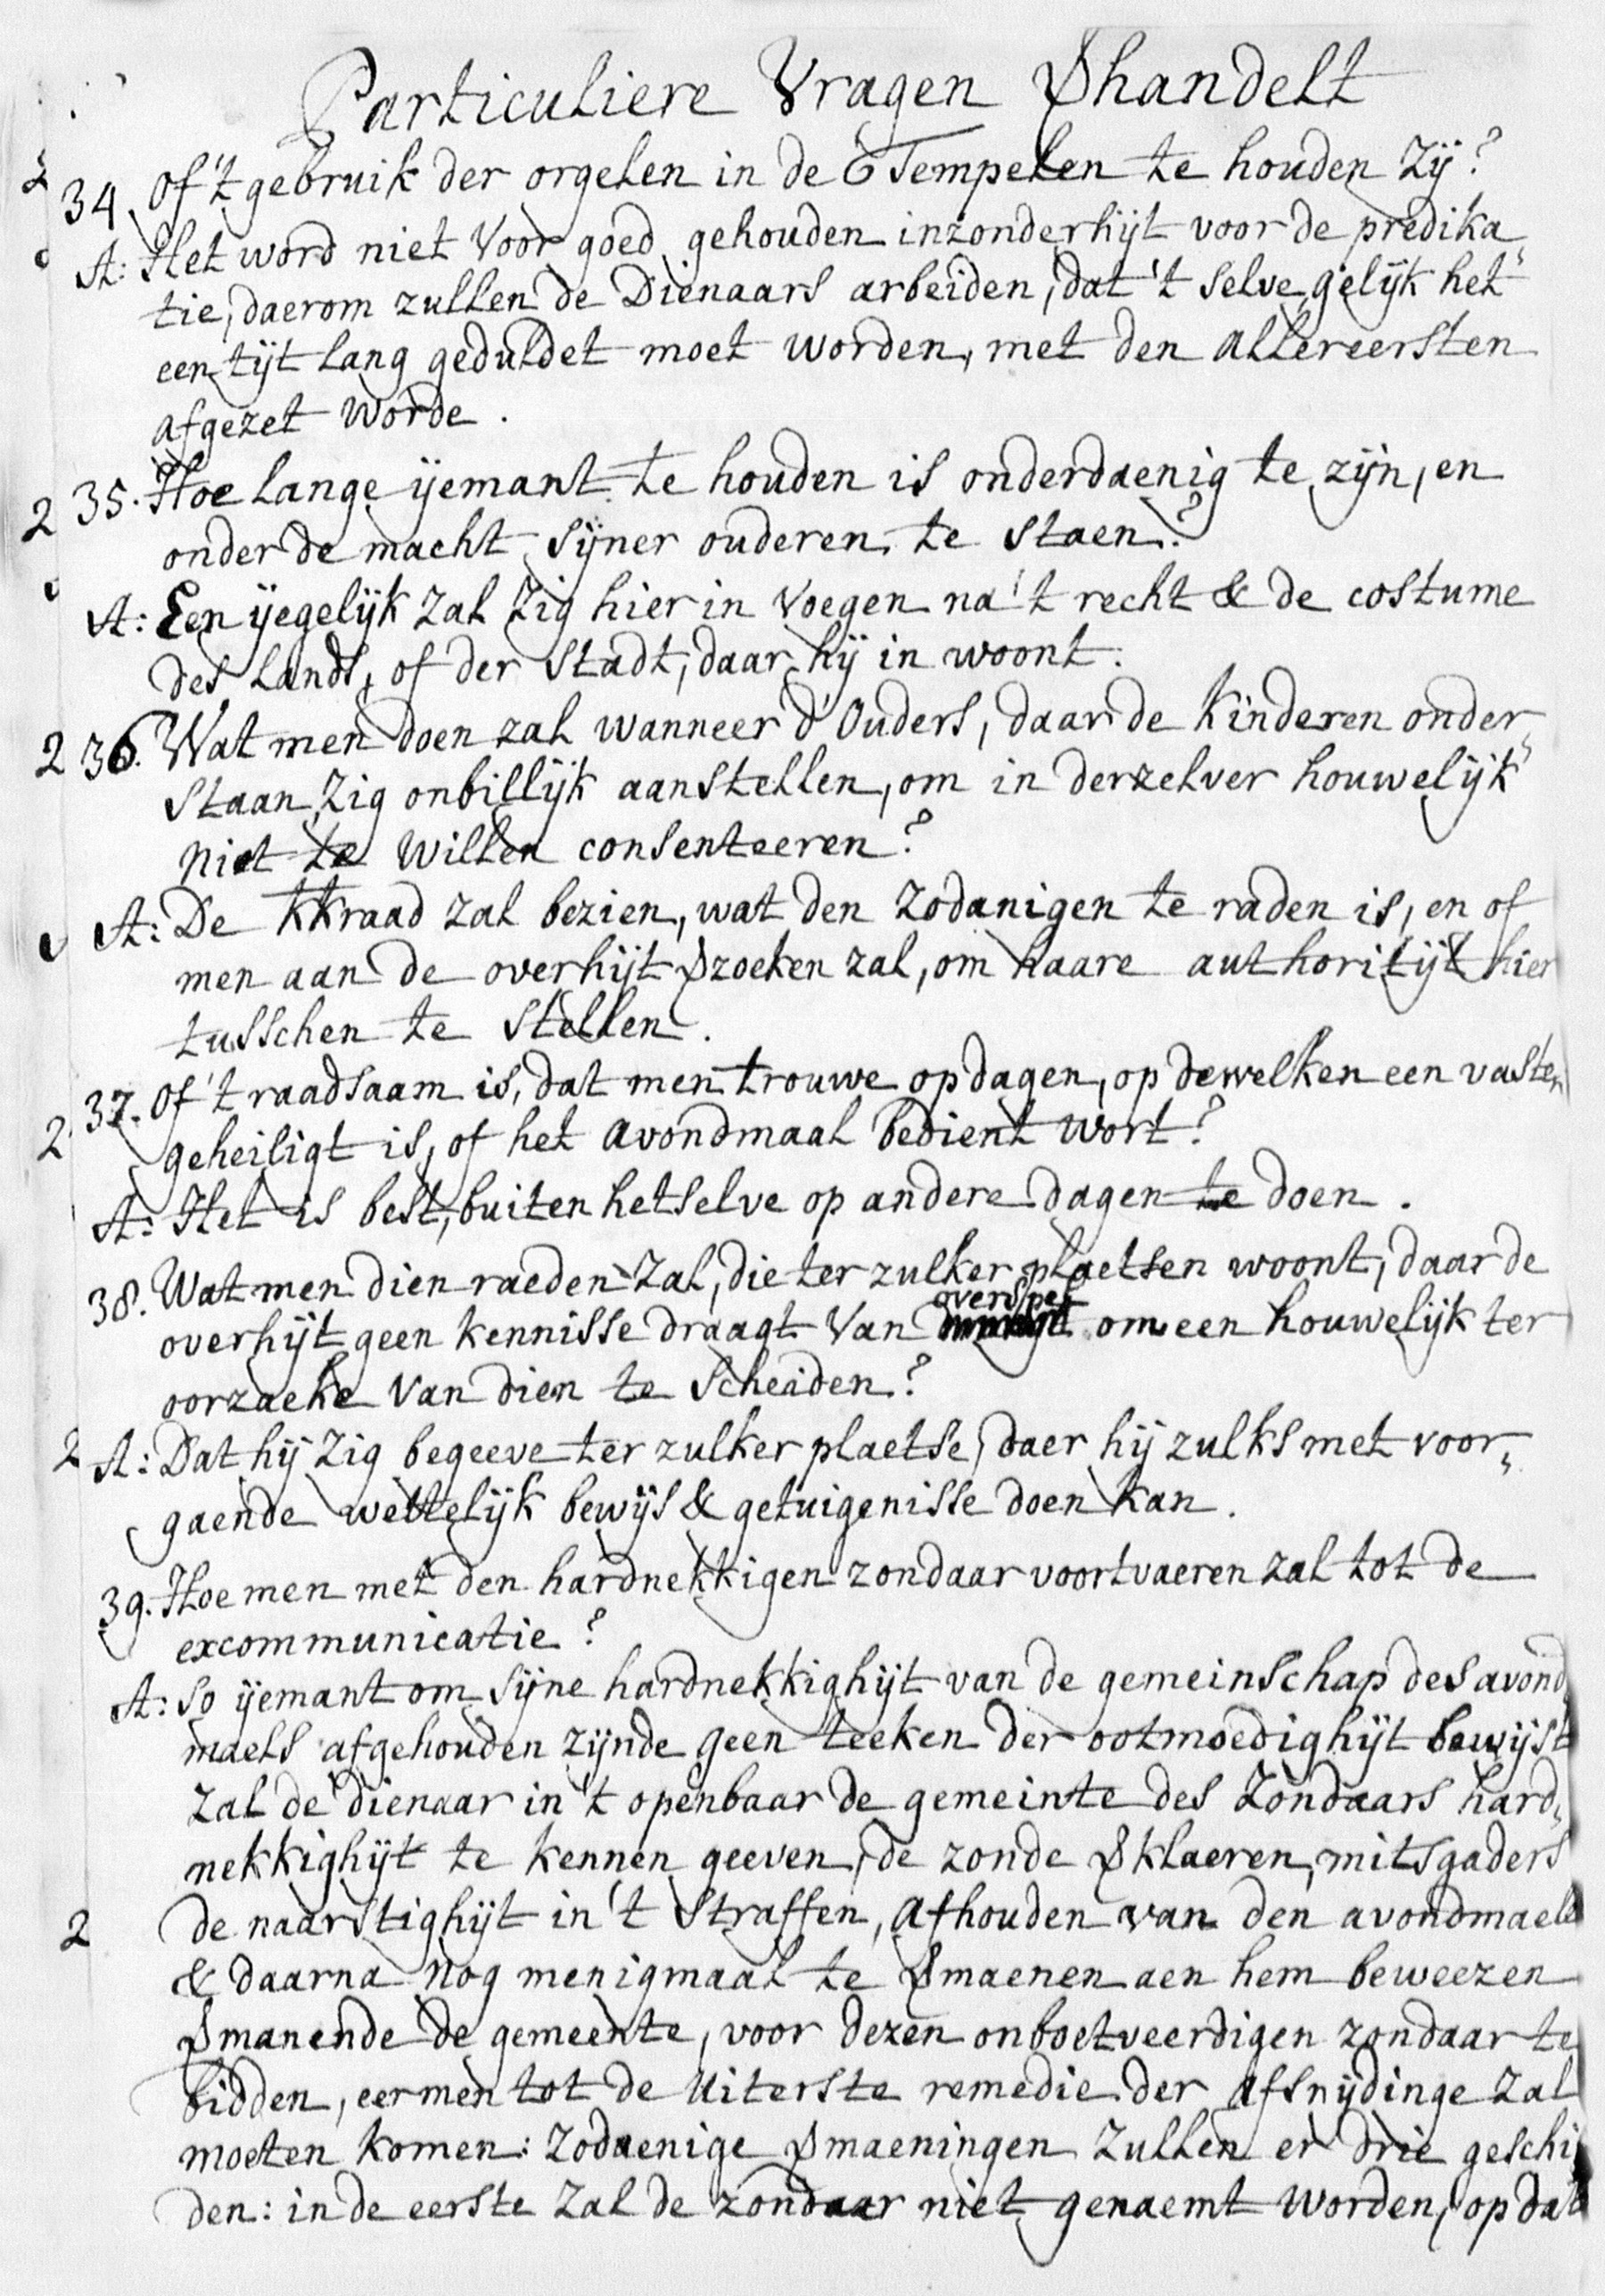 Particuliere Vragen Vhandelt
2 34. Of 't gebruik der orgelen in de Tempelen te houden zij?
A: Het word niet voor goed gehouden inzonderhijt voor de predika„
tie, daerom zullen de Dienaars arbeiden, dat 't selve gelijk het
een tijt lang geduldet moet worden, met den allereersten
afgezet worde.
2 35. Hoe lange ijemant te houden is onderdaenig te zijn, en
onder de macht sijner ouderen te staen?
A: Een ijegelijk zal zig hier in voegen na 't recht & de costume
des Lands, of der Stadt, daar hij in woont.
2 36. Wat men doen zal wanneer d'Ouders, daar de kinderen onder„
staan, zig onbillijk aanstellen, om in derzelver houwelijk
niet te willen consenteeren?
A: De kkraad zal bezien, wat den zodanigen te raden is, en of
men aan de overhijt Vzoeken zal, om haare authoritijt hier
tusschen te stellen.
2 37. Of 't raadsaam is, dat men trouwe op dagen, op dewelken een vasten
geheiligt is, of het avondmaal bedient wort?
A: Het is best, buiten hetselve op andere dagen te doen.
38. Wat men dien raeden zal, die ter zulker plaetsen woont, daar de
overspel
overhijt geen kennisse draagt van om een houwelijk ter
oorzaeke van dien te scheiden?
2 A: Dat hij zig begeeve ter zulker plaetse, daer hij zulks met voor„
gaende wettelijk bewijs & getuigenisse doen kan.
39. Hoe men met den hardnekkigen zondaar voortvaeren zal tot de
excommunicatie?
A: So ijemant om sijne hardnekkighijt van de gemeinschap des avond„
maels afgehouden zijnde geen teeken der ootmoedighijt bewijst
zal de dienaar in 't openbaar de gemeinte des zondaars hard„
nekkighijt te kennen geeven, de zonde Vklaeren, mitsgaders
2 de naarstighijt in 't straffen, afhouden van den avondmaele
& daarna nog menigmaal te Vmaenen aen hem beweezen
Vmanende de gemeente, voor dezen onboetveerdigen zondaar te
bidden, eer men tot de uiterste remedie der afsnijdinge zal
moeten komen: zodaenige Vmaeningen zullen er drie geschi„
den: in de eerste zal de zondaar niet genaemt worden, op dat